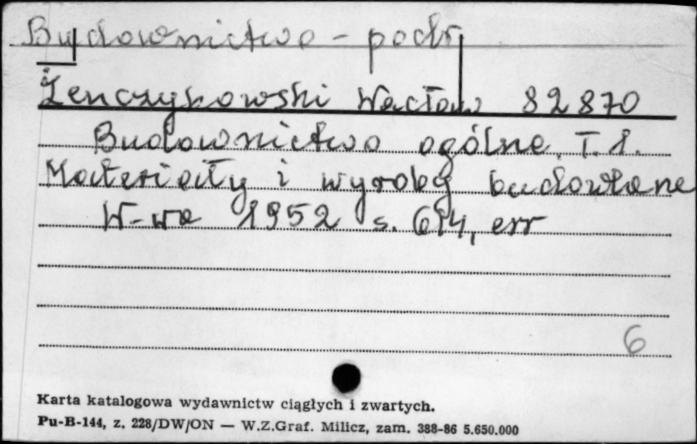 Budownictwo - podr
Żenczykowski Wacław 82870
Budownictwo ogólne. T. 1.
Materiały i wyroby budowlane
W-wa 1952 s. 614, err
6
Karta katalogowa wydawnictw ciągłych i zwartych.
Pu-B-144, z. 228/DW/ON — W.Z.Graf. Milicz, zam. 388-86 5.650.000